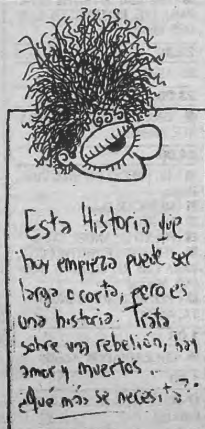 Esta Historia que
hoy empieza puede ser
larga o corta, pero es
una historia. Trata
sobre una rebelión, hay
amor y muertos...
¿Qué más se necesita?